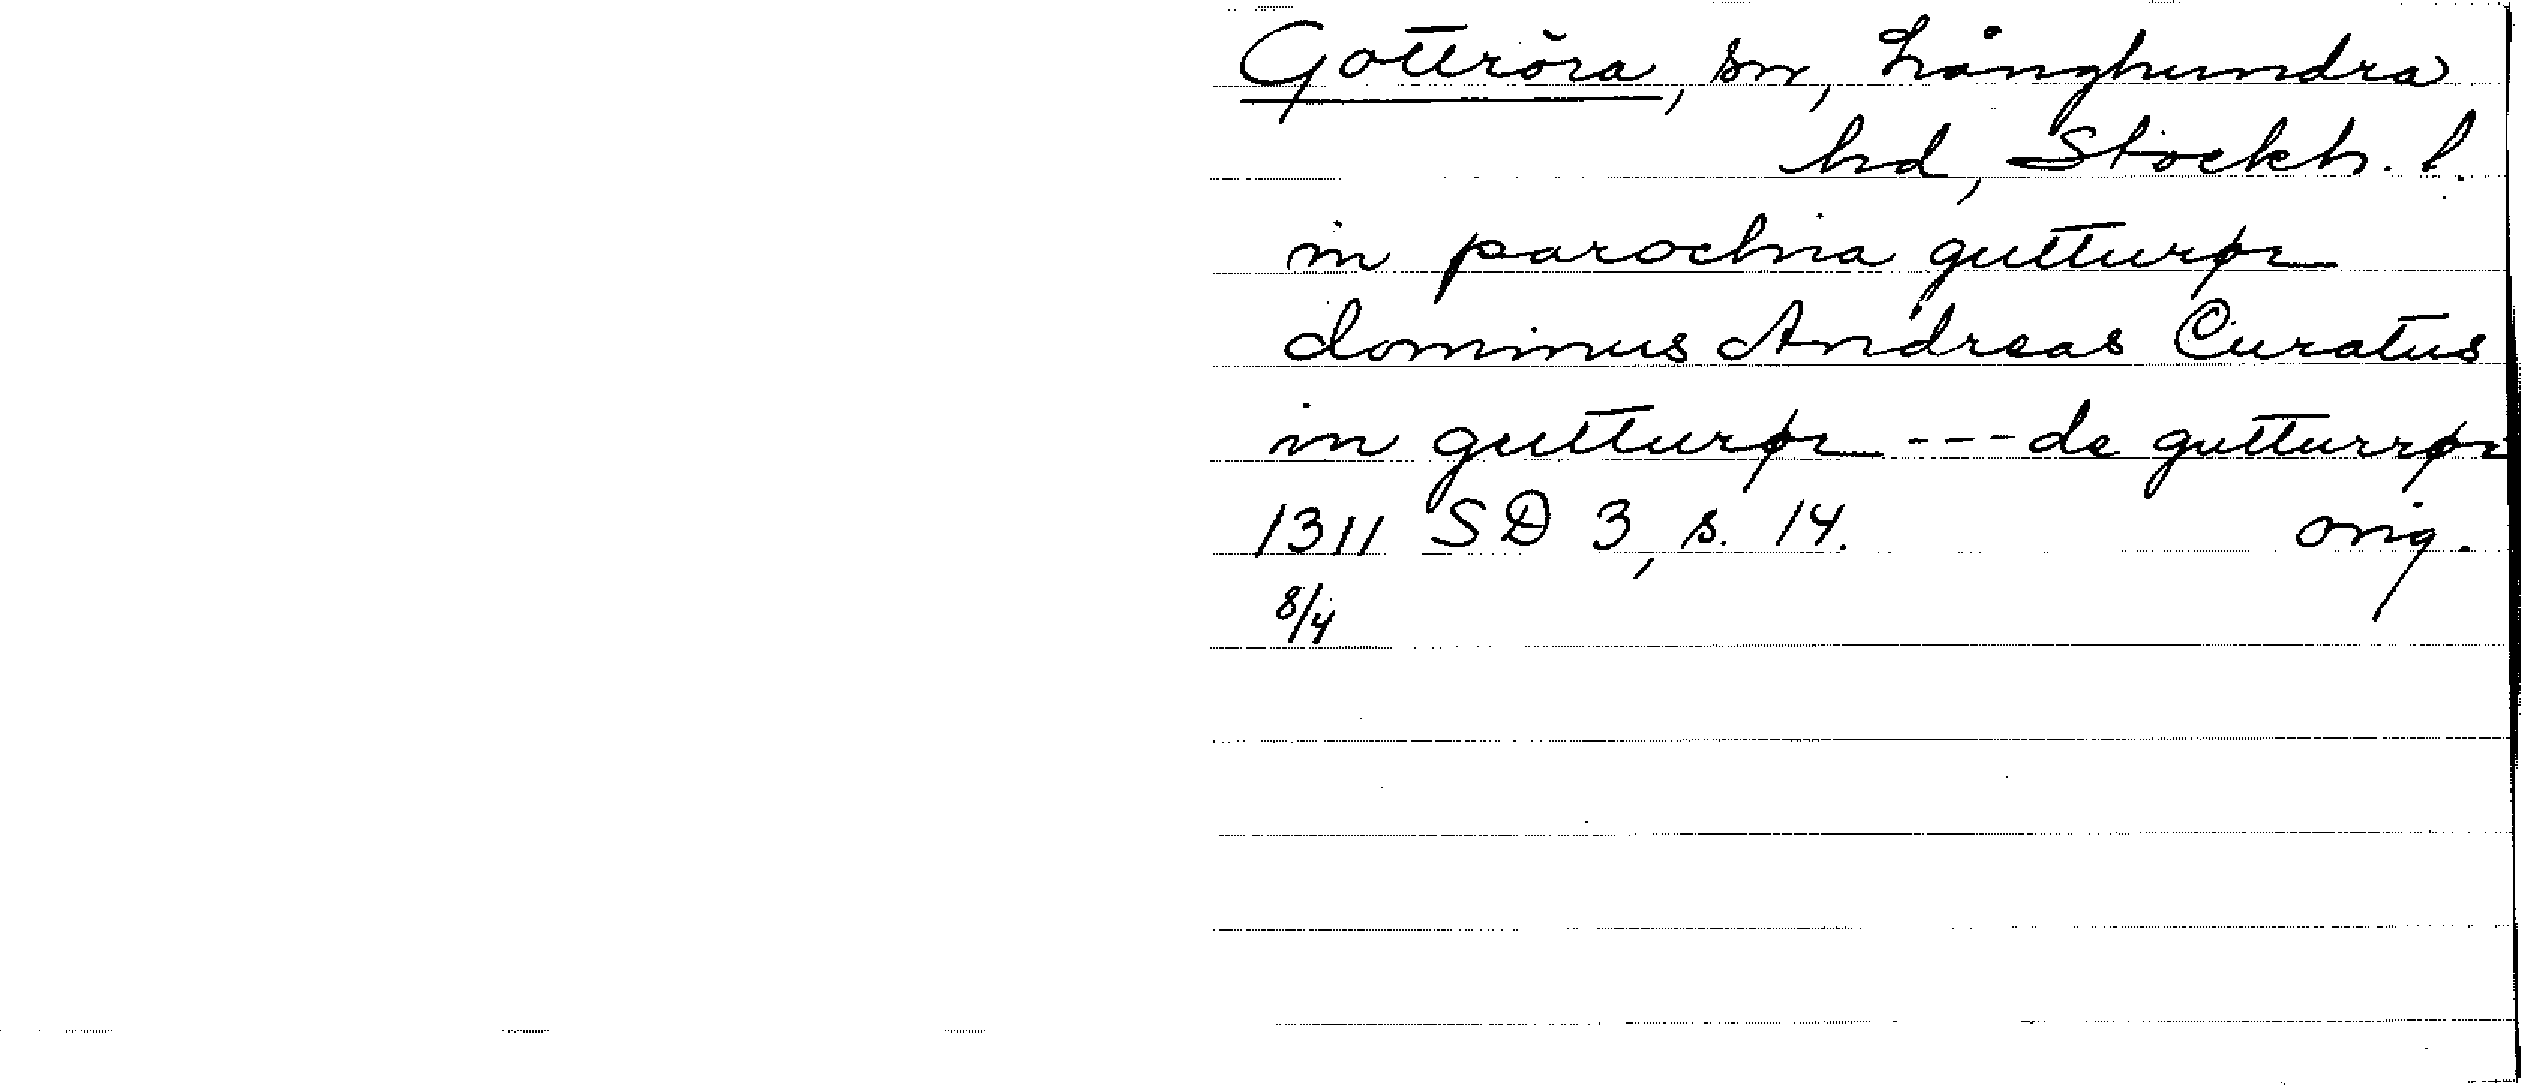 Gottröra, sn, Långhundra
hd, Stockh. l.
in parochia gutturør
dominus Andreas Curatus
in gutturør --- de gutturrør
1311 SD 3, s. 14. orig.
8/4